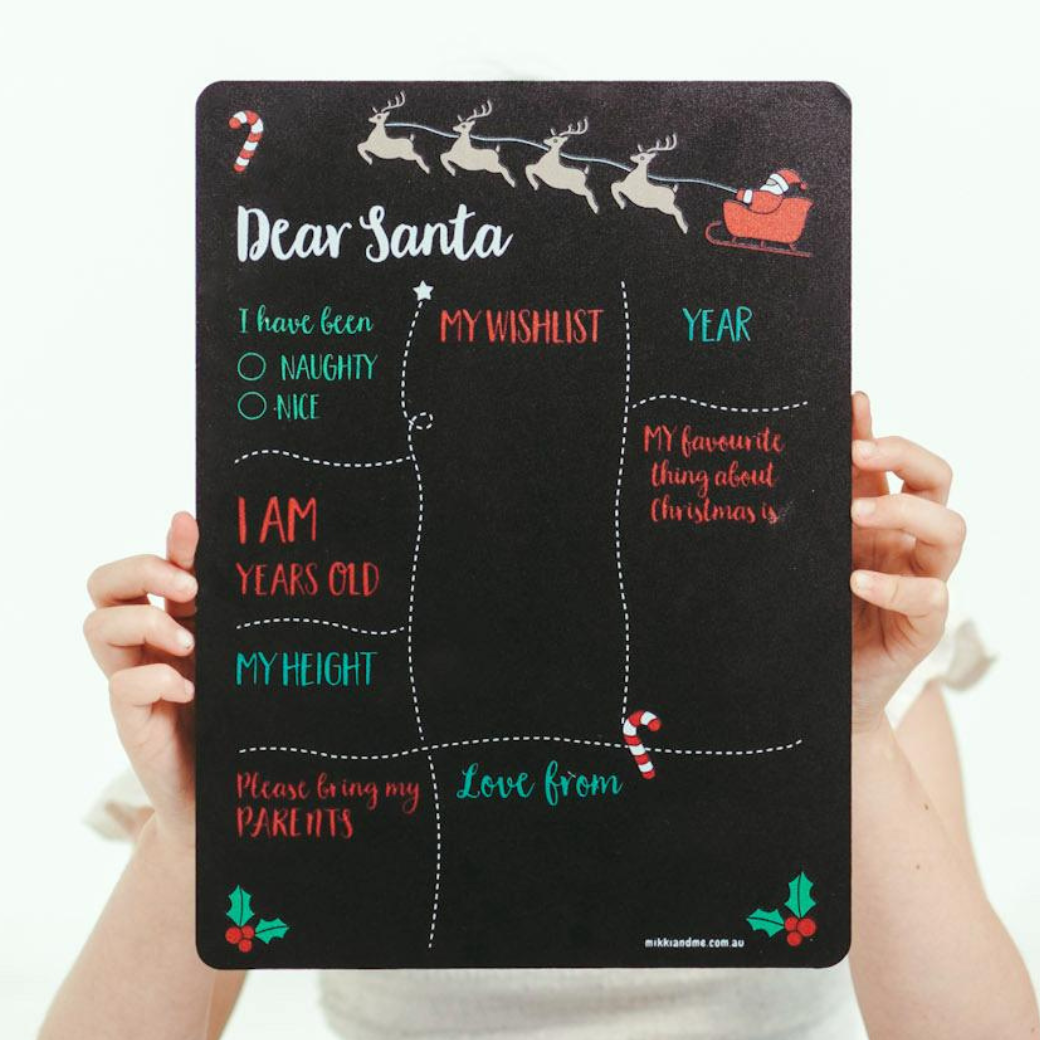 Dear Santa
I have been
NAUGHTY
NICE
I AM
YEARS OLD
MY HEIGHT
Please bring my
PARENTS
MY WISHLIST
YEAR
MY favourite
thing about
Christmas is
Love from
mikkiandme.com.au